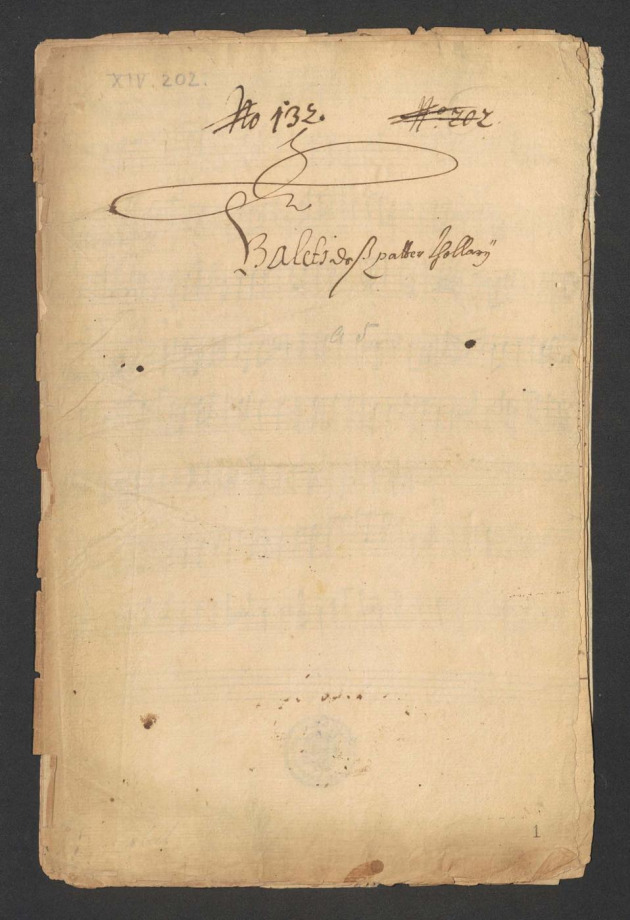 XIV. 202.
No 132. No. 202
Baleti deß patter Hollarÿ
a 5
1